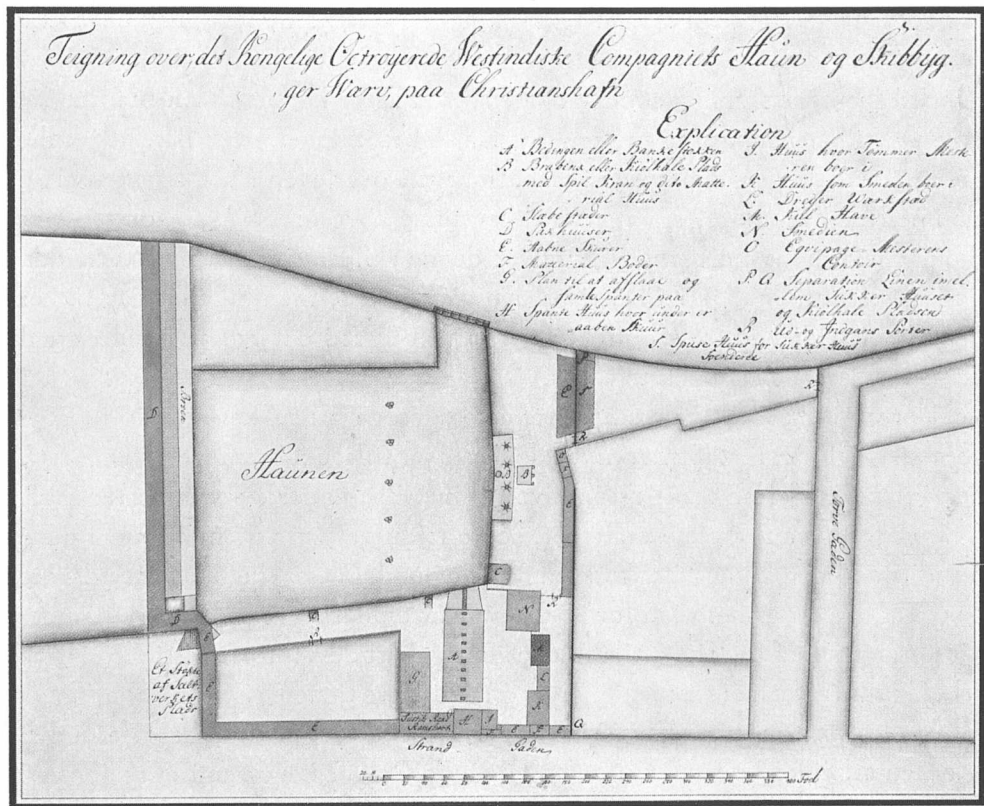 Teigning over det Kongelige Octroyerede Westindiske Compagniets Haün og Skibbyg-
ger Warv, paa Christianshafn
Explication
A Bedingen eller Banke stokken
B Brabenk eller Kiolhale Plads
med Spil Kran og dito Matte-
rial Huus
C Slabe stæder
D Pakhuüser
E. Aabne Skurer
F Matterial Boder
G. Plan til at afslaae og
samle Spanter paa
H Spante Huus hvor under er
aaben Skuur
I. Huus hvor Tømmer Mest-
ren boer i
K Huus som Smeden boer i
L Dreyer Værksted
M. Kull Have
N Smedien
O Eqvipage-Mesterens
Contoir
P. Q Separation Linen imel-
lem Sukker Huuset
og Kiolhale Pladsen
R Ud- og Indgans Porter
S. Spise Huus for Sukker Huus
D
Haünen
P
E
S
R
B
E
E
Torve Gaden
C
N
R
D
E
A
M
L
K
G
Et Støkke
af Salt-
verkets
Plads
E
E
H
I
E
F
E
Q
Strand
Gaden
Fod